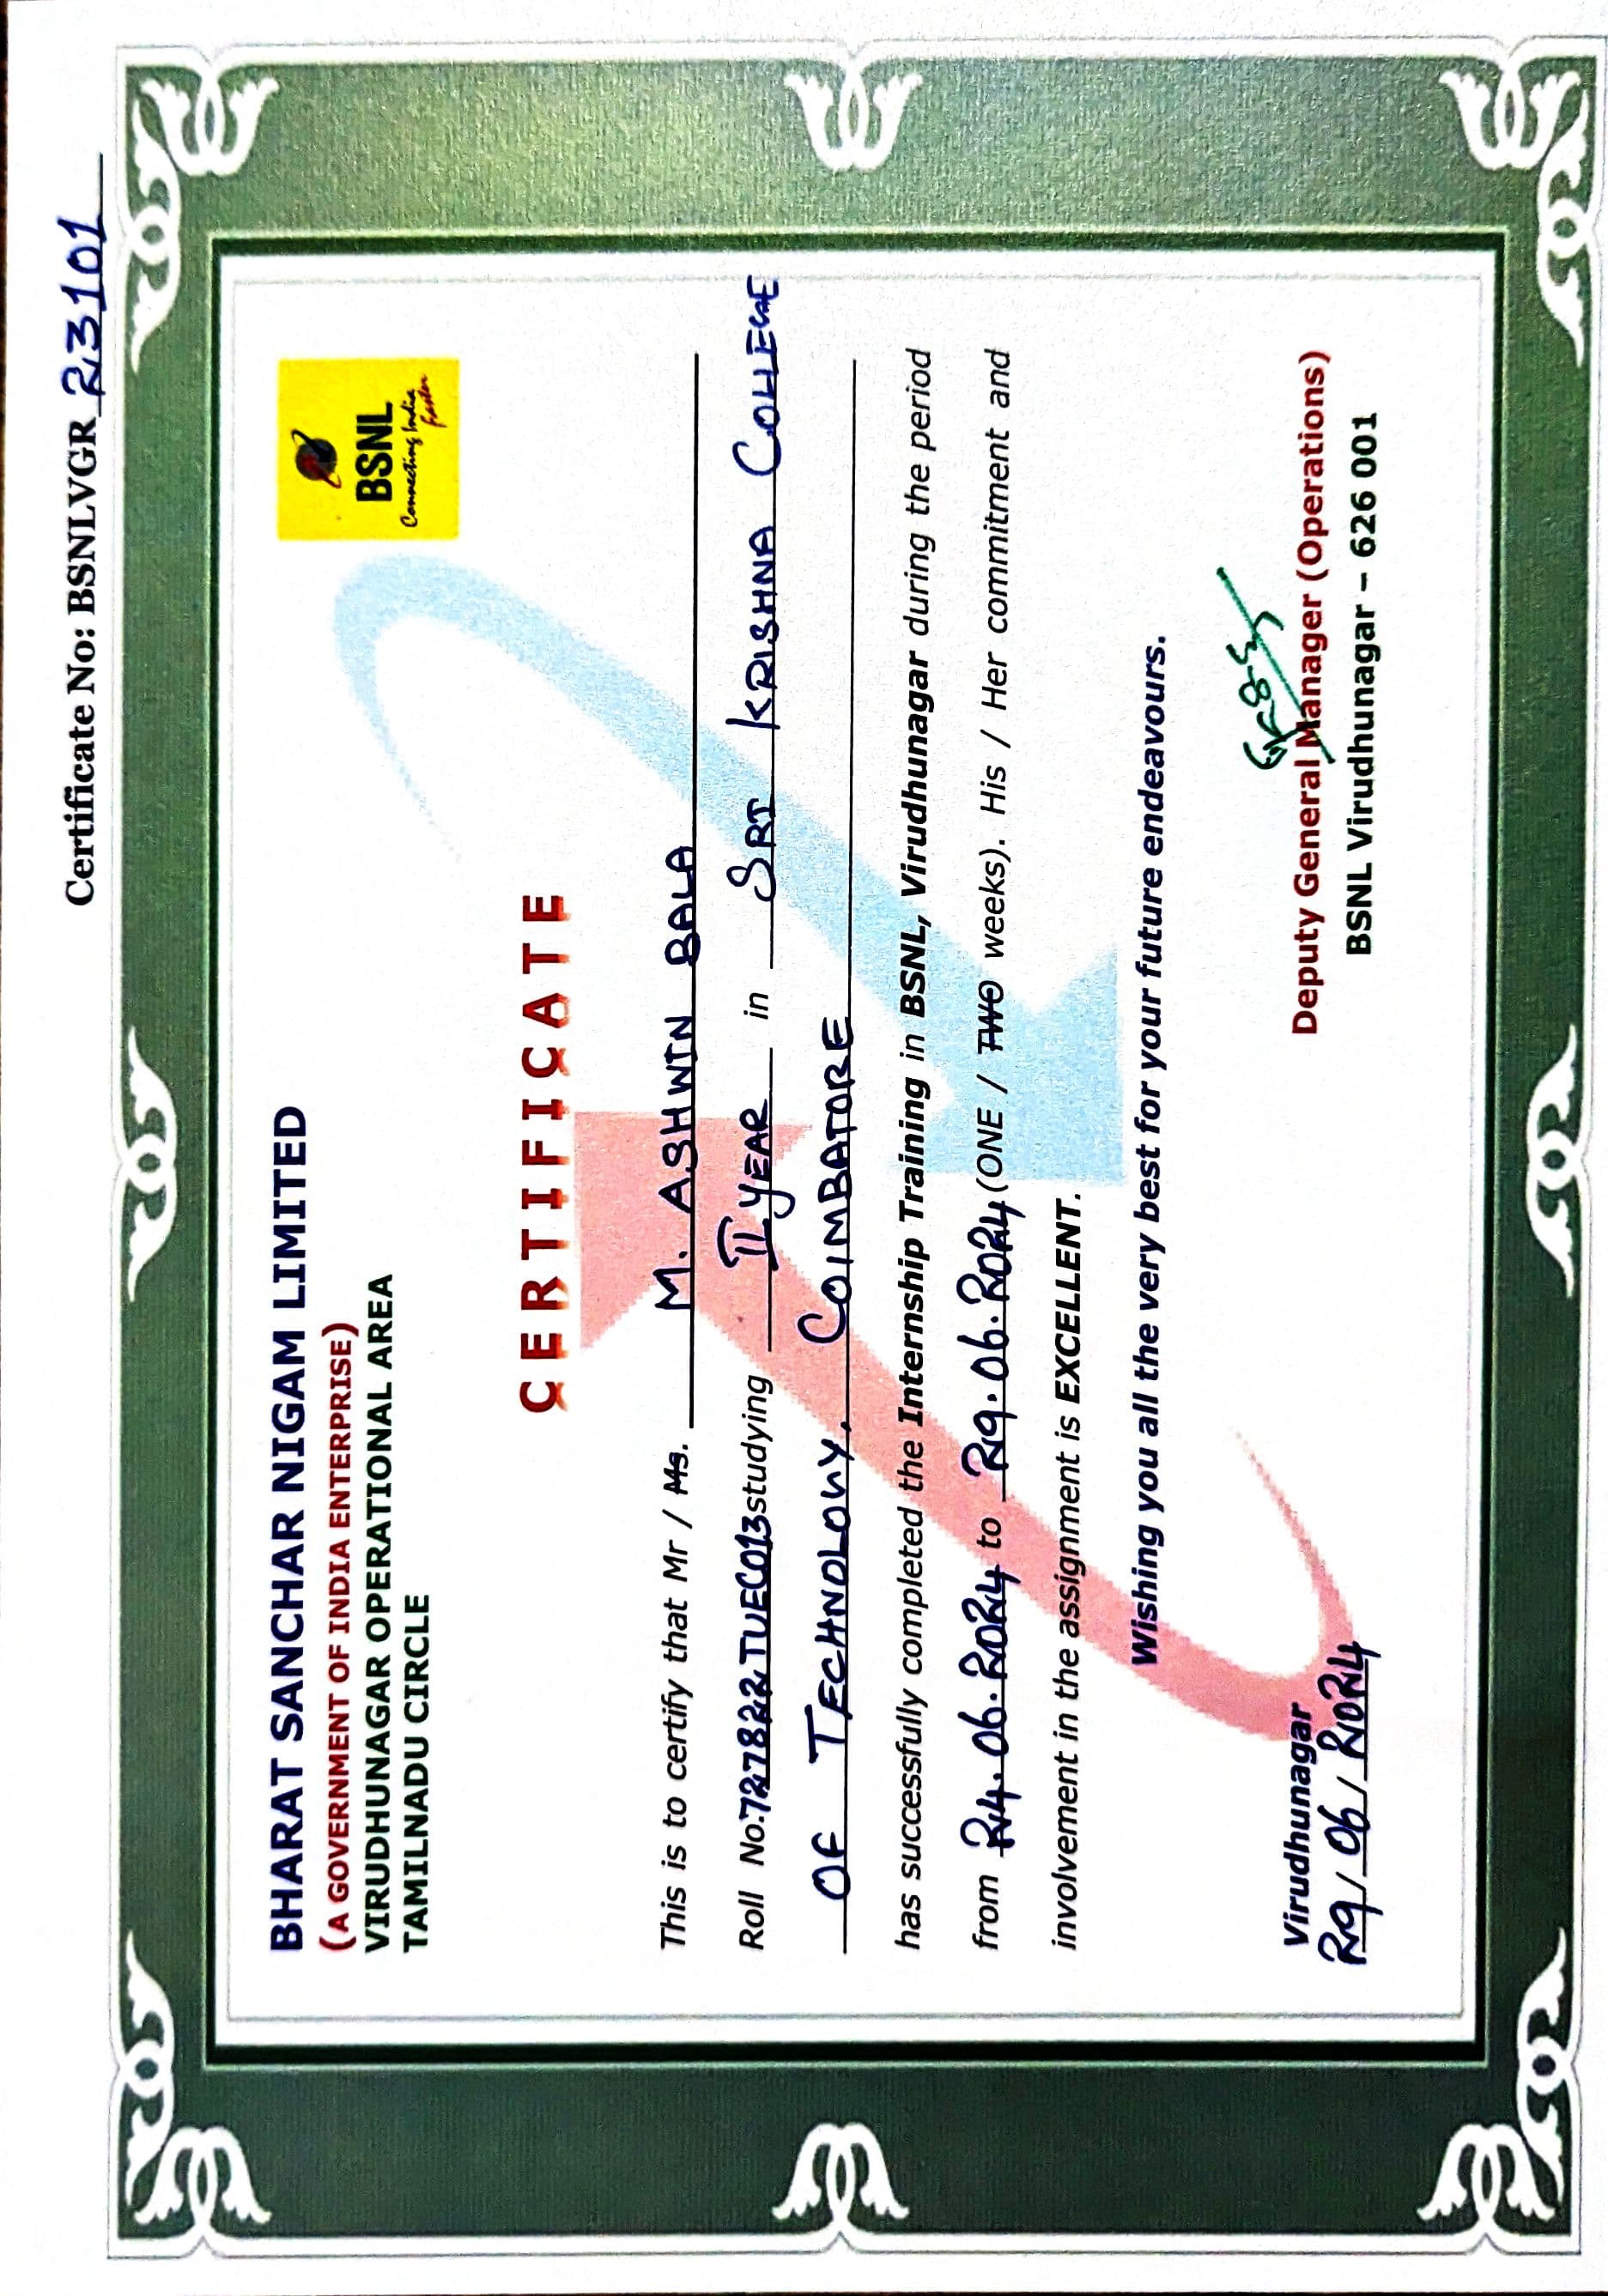 Certificate No: BSNLVGR 23101
BHARAT SANCHAR NIGAM LIMITED
(A GOVERNMENT OF INDIA ENTERPRISE)
VIRUDHUNAGAR OPERATIONAL AREA
TAMILNADU CIRCLE
BSNL
Connecting India
faster
CERTIFICATE
This is to certify that Mr / Ms. M. ASHWIN BALA
Roll No:727822TUEC013 studying II YEAR in SRI KRISHNA COLLEGE
OF TECHNOLOGY, COIMBATORE
has successfully completed the Internship Training in BSNL, Virudhunagar during the period
from 24.06.2024 to 29.06.2024 (ONE / TWO weeks). His / Her commitment and
involvement in the assignment is EXCELLENT.
Wishing you all the very best for your future endeavours.
Virudhunagar
29/06/2024
Deputy General Manager (Operations)
BSNL Virudhunagar – 626 001